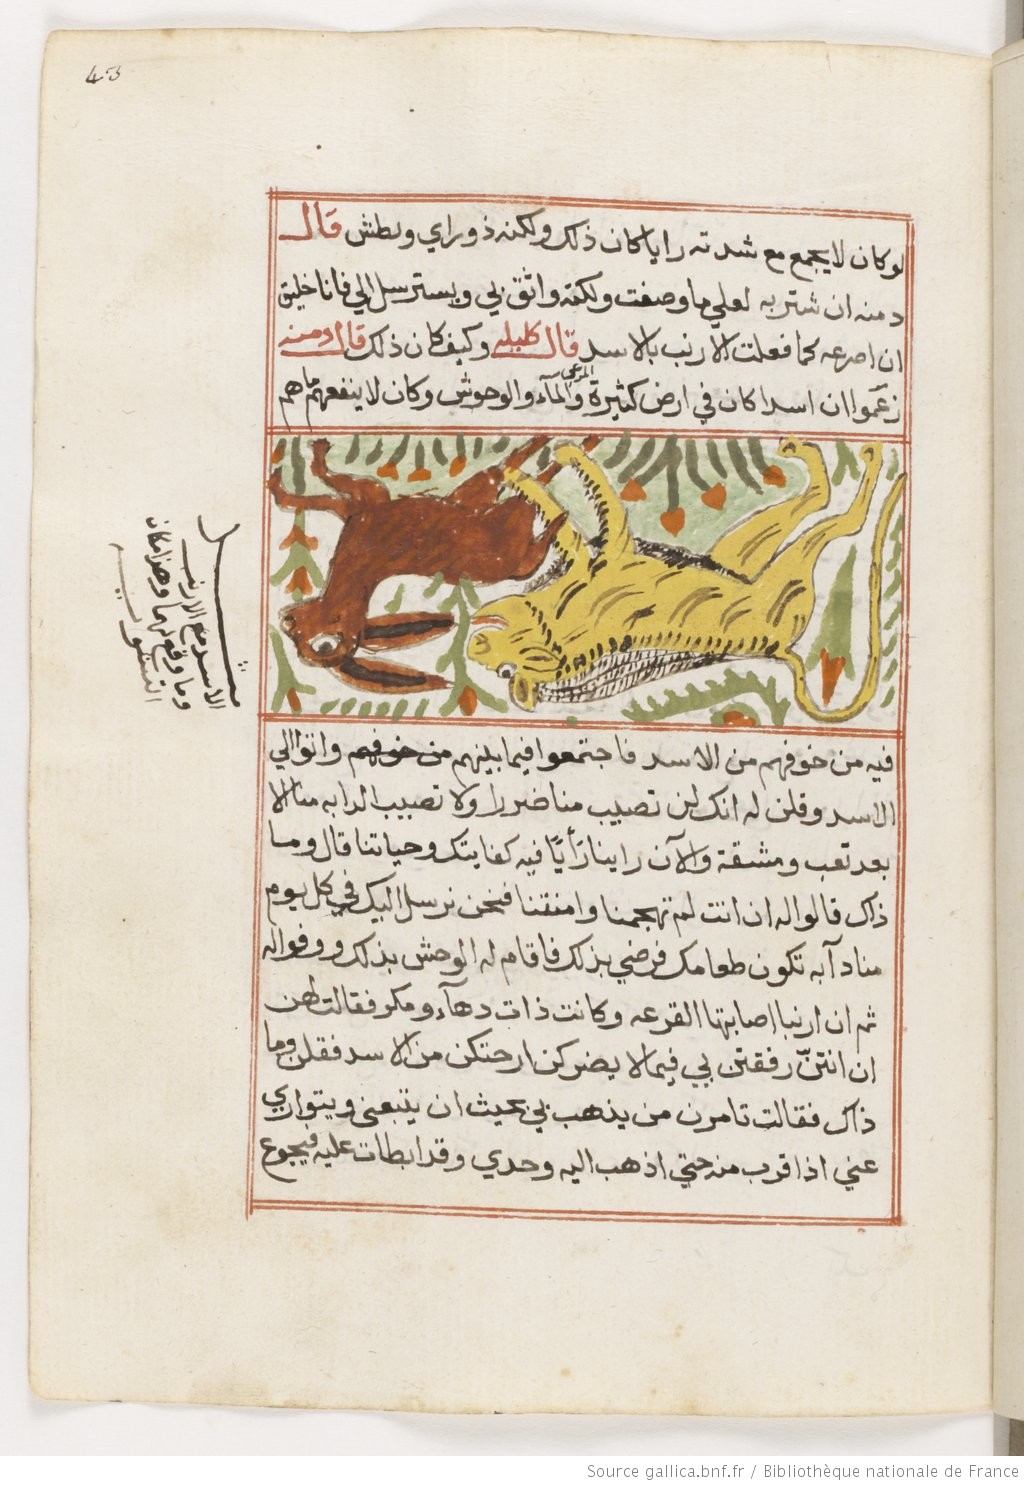 43
لو كان لا يجمع مع شدته رايا كان ذلك ولكنه ذو راي وبطش قال
دمنه ان شتربه لعلي ما وصفت ولكنه واثق بي ويسترسل الي فانا خليق
ان اصرعه كما فعلت الارنب بالاسد قال كليله وكيف كان ذلك قال دمنه
زعموا ان اسدا كان في ارض كثيرة المرعي والمآء والوحوش وكان لا ينفعهم ما هم
الاسد مع الارنب
وما وقع لهما وهذا مكان
فيه من خوفهم من الاسد فاجتمعوا فيما بينهم من خوفهم واتوا الي
الاسد وقلن له انك لن تصيب منا ضررا ولا تصيب الدابه منا الا
بعد تعب ومشقة والآن راينا رأيًا فيه كفايتك وحياتنا قال وما
ذاك قالوا له ان انت لم تهجمنا وامنتنا فنحن نرسل اليك في كل يوم
منا دآبه تكون طعامك فرضي بذلك فاقام له الوحش بذلك ووفوا له
ثم ان ارنبا اصابتها القرعه وكانت ذات دهآء ومكر فقالت لهن
ان انتنّ رفقتن بي فيما لا يضركن ارحتكن من الاسد فقلن وما
ذاك فقالت تامرن من يذهب بي بحيث ان يتبعني ويتواري
عني اذا قرب منه حتي اذهب اليه وحدي وقد ابطات عليه فيجوع
Source gallica.bnf.fr / Bibliothèque nationale de France